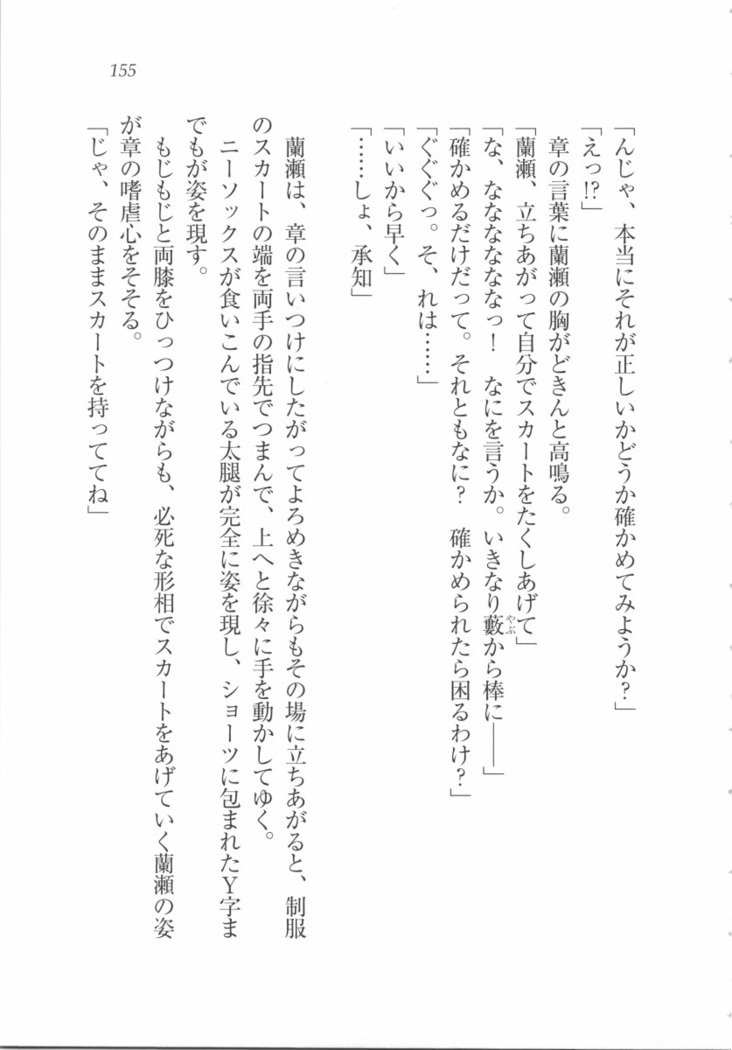 155
「んじゃ、本当にそれが正しいかどうか確かめてみようか？」
「えっ!?」
章の言葉に蘭瀬の胸がどきんと高鳴る。
「蘭瀬、立ちあがって自分でスカートをたくしあげて」
「な、なななななっ！　なにを言うか。いきなり藪やぶから棒に――」
「確かめるだけだって。それともなに？　確かめられたら困るわけ？」
「ぐぐぐっ。そ、れは……」
「いいから早く」
「……しょ、承知」
蘭瀬は、章の言いつけにしたがってよろめきながらもその場に立ちあがると、制服
のスカートの端を両手の指先でつまんで、上へと徐々に手を動かしてゆく。
ニーソックスが食いこんでいる太腿が完全に姿を現し、ショーツに包まれたＹ字ま
でもが姿を現す。
もじもじと両膝をひっつけながらも、必死な形相でスカートをあげていく蘭瀬の姿
が章の嗜虐心をそそる。
「じゃ、そのままスカートを持っててね」